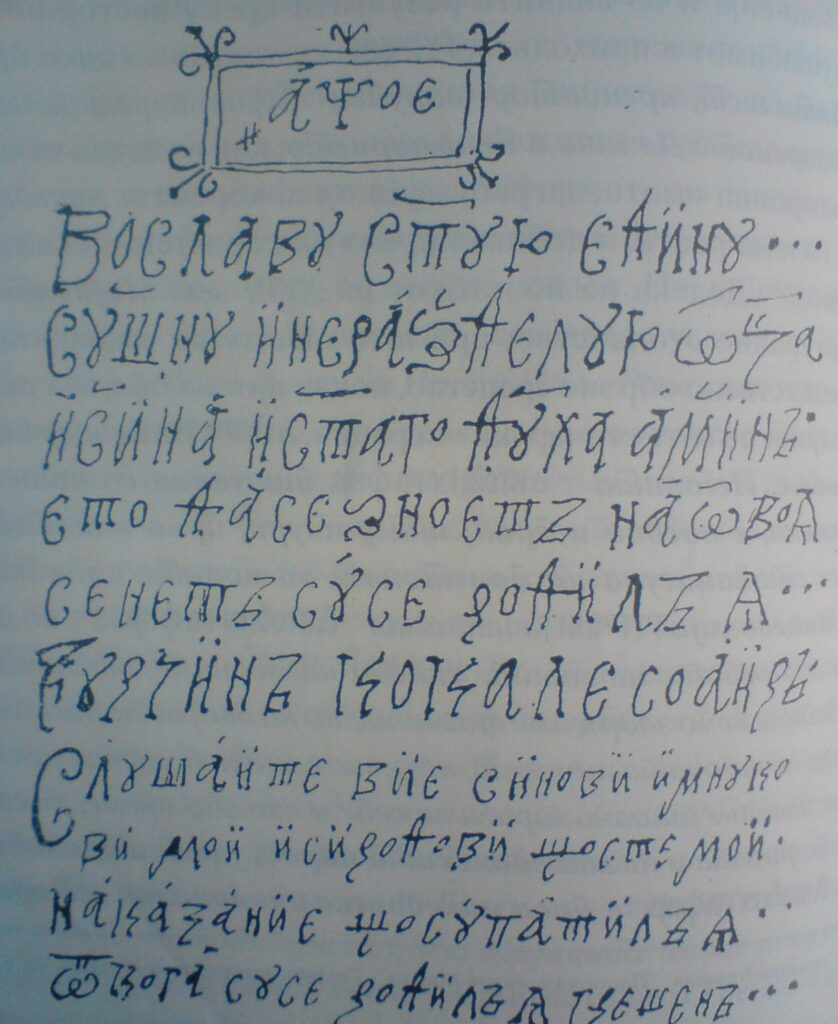 аѰое
Вославу стую єдину...
сущну инеразделую ѿца
исина истаго духа аминь·
єто да се зноетъ на ѡвоа
сенетъ сусе родилъ ѧ...
Ѓурчинъ Кокале соаиръ
Слушаите вие синови имнуко
ви мои исиродови щосте мои·
наказание щосупатилъ ѧ...
ѿ кога сусе родилъ ѧ грешенъ...